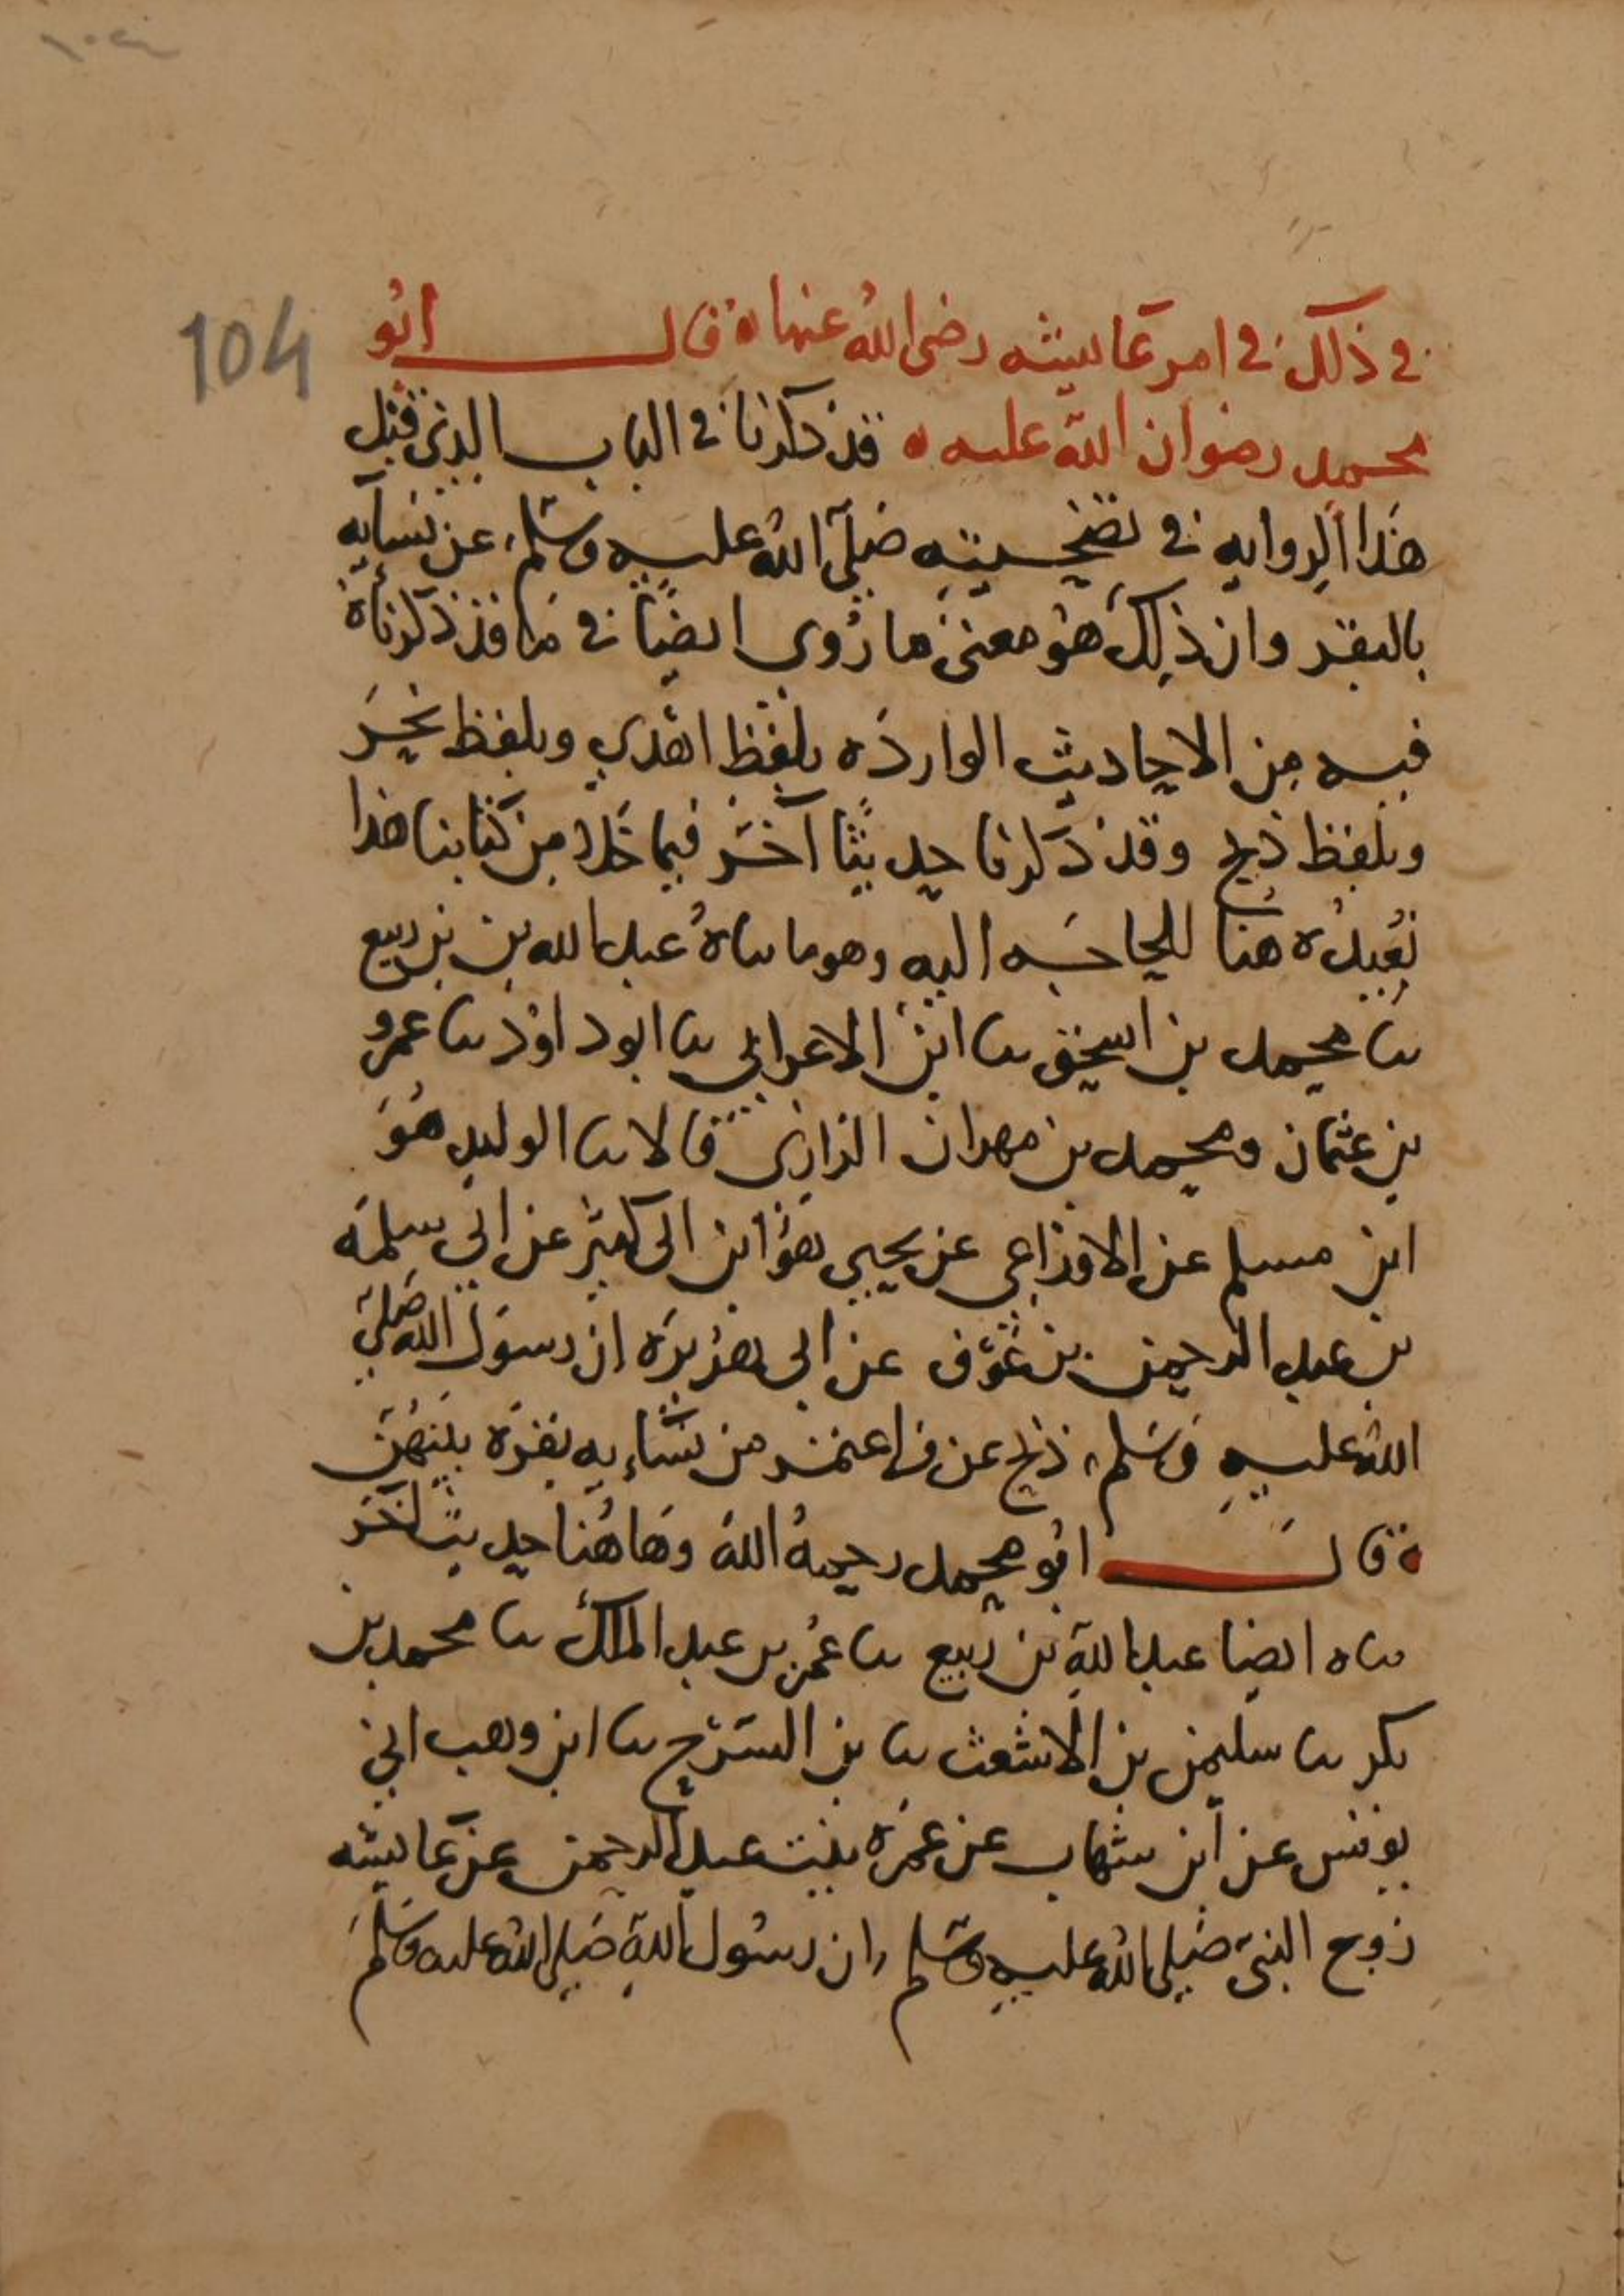 104
في ذلك في امر عايشه رضي الله عنها ه قال ابو
محمد رضوان الله عليه ه قد ذكرنا في الباب الذي قبل
هذا الروايه في تضحيته صلى الله عليه وسلم عن نسايه
بالبقر وان ذلك هو معنى ما روى ايضًا في ما قد ذكرناه
فيه من الاحاديث الوارده بلفظ اهدي وبلفظ نحر
وبلفظ ذبح وقد ذكرنا حديثًا آخر فيما خلا من كتابنا هذا
نُعِيدُه هنا للحاجه اليه وهو ما ساه عبد الله بن ربيع
سا محمد بن اسحق سا ابن الاعرابي سا ابو داود سا عمرو
بن عثمان ومحمد بن مهران الرازي قالا سا الوليد هو
ابن مسلم عن الاوزاعي عن يحيى هو ابن ابي كثير عن ابي سلمه
بن عبد الرحمن بن عوف عن ابي هريره ان رسول الله صلى
الله عليه وسلم ذبح عن من اعتمر من نسايه بقره بينهن
ه قال ابو محمد رحمه الله وهاهنا حديث آخر
ساه ايضا عبد الله بن ربيع سا عمر بن عبد الملك سا محمد بن
بكر سا سليمن بن الاشعث سا بن السرح سا ابن وهب اني
يونس عن ابن شهاب عن عمره بنت عبد الرحمن عن عايشه
زوج النبي صلى الله عليه وسلم ان رسول الله صلى الله عليه وسلم